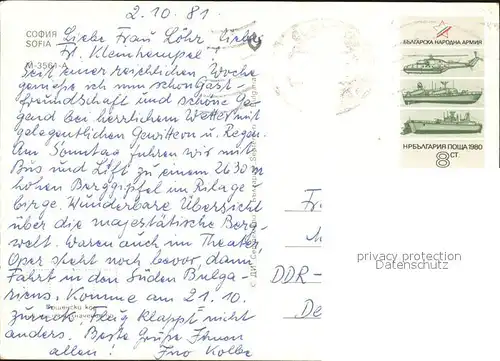 2.10.81.
СОФИЯ
SOFIA
М-3561-А
Liebe Frau Löhr, liebe
Fr. Kleinhempel
Seit einer reichlichen Woche
genieße ich nun schon Gast-
freundschaft und schöne Ge-
gend bei herrlichem Wetter mit
gelegentlichen Gewittern u. Regen.
Am Sonntag fuhren wir mit
Bus und Lift zu einem 2630 m
hohen Berggipfel im Rilage
birge. Wunderbare Übersicht
über die majestätische Berg-
welt. Waren auch im Theater,
Oper steht noch bevor, dann
Fahrt in den Süden Bulga-
riens. Komme am 21.10.
zurück. Flug klappt nicht
anders. Beste Grüße Ihnen
allen! Ino Kolbe
БЪЛГАРСКА НАРОДНА АРМИЯ
НР БЪЛГАРИЯ ПОЩА 1980
8 СТ.
Fr
DDR-
De
privacy protection
Datenschutz